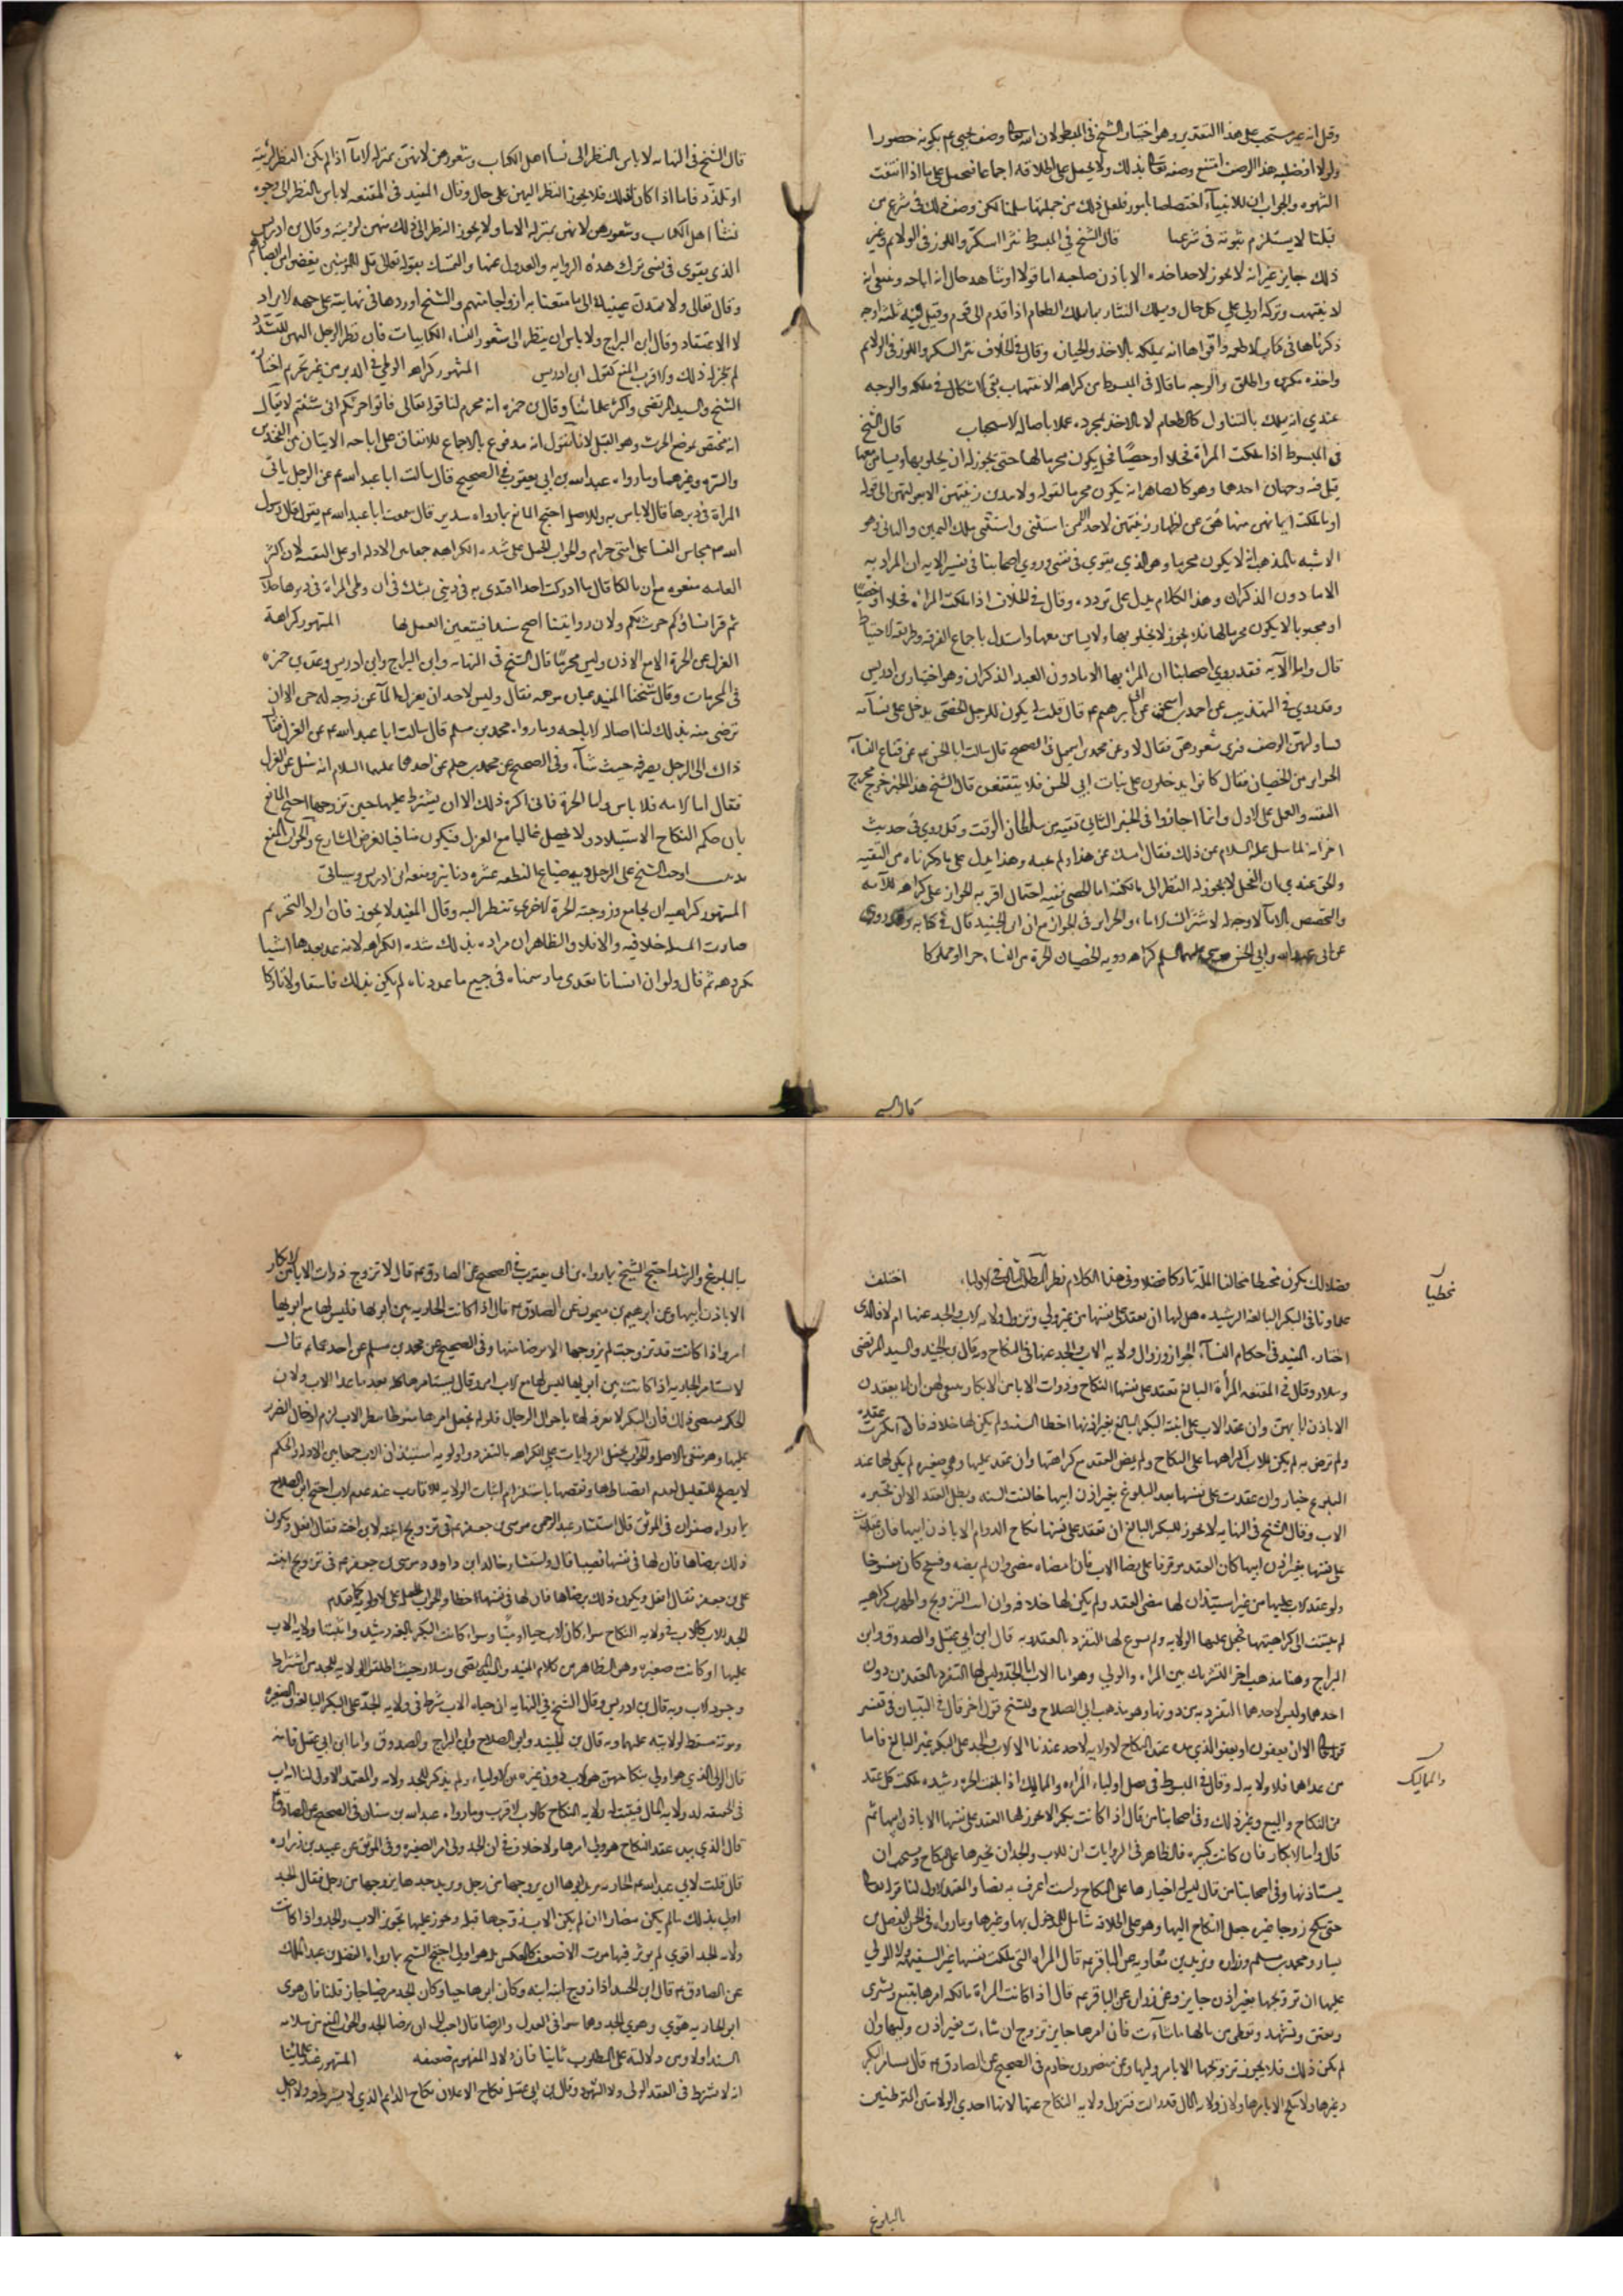 وقيل انه غير مستحب على هذا التقدير وهو اختيار الشيخ في المبسوط لان الله تعالى وصف يحيى عم بكونه حصورا
ولولا افضلية هذا الوصف امتنع وصفه تعالى بذلك ولا يحمل على اطلاقه اجماعا فيحمل على ما اذا انتفت
الشهوه والجواب ان للانبيآء اختصاصا بامور فلعل ذلك من جملتها سلمنا لكن وصف ذلك في شرع من
قبلنا لا يستلزم ثبوته في شرعنا قال الشيخ في المبسوط نثر السكر واللوز في الولائم وغير
ذلك جايز غير انه لا يجوز لاحد اخذه الا باذن صاحبه اما قولا او شاهد حال انه اباحه وينبغي انه
لا ينتهب وتركه اولى على كل حال ويملك النثار بما يملك الطعام اذا قدم الى قوم وقيل فيه ثلثة اوجه
ذكرناها في كتاب الاطعمه واقواها انه يملكه بالاخذ والحيازه وقال في الخلاف نثر السكر واللوز في الولايم
واخذه مكروه واطلق والوجه ما قاله في المبسوط من كراهه الانتهاب بقي الاشكال في ملكه والوجه
عندي انه يملك بالتناول كالطعام لا بالاخذ بمجرده عملا باصاله الاستصحاب قال الشيخ
في المبسوط اذا ملكت المراة فحلا او خصيا فهل يكون محرما لها حتى يجوز له ان يخلو بها ويسافر معها
قيل فيه وجهان احدهما وهو كالظاهر انه يكون محرما لقوله ولا يبدين زينتهن الا لبعولتهن الى قوله
او ما ملكت ايمانهن فنهاهن عن اظهار زينتهن لاحد الا من استثنى واستثنى ملك اليمين والثاني وهو
الاشبه بالمذهب انه لا يكون محرما وهو الذي يقوي في نفسي وروي اصحابنا في تفسير الايه ان المراد به
الاماء دون الذكران وهذا الكلام يدل على تردده وقال في الخلاف اذا ملكت المراة فحلا او خصيا
او مجبوبا لا يكون محرما لها فلا يجوز له ان يخلو بها ولا يسافر معها واستدل باجماع الفرقه وطريقه الاحتياط
قال واما الآيه فقد روي اصحابنا ان المراد بها الاماء دون العبيد الذكران وهو اختيار ابن ادريس
وقد روي في التهذيب عن احمد بن اسحق عن ابي ابرهيم عم قال قلت له يكون للرجل الخصي يدخل على نسآئه
فيناولهن الوضوء فيرى شعورهن فقال لا وعن محمد بن اسمعيل في الصحيح قال سالت ابا الحسن عم عن قناع النسآء
الحراير من الخصيان فقال كانوا يدخلون على بنات ابي الحسن فلا يتقنعن قال الشيخ هذا الخبر خرج مخرج
التقيه والعمل على الاول وانما اجازوا في الخبر الثاني تقيه من سلطان الوقت وقد روي في حديث
اخر انه لما سئل عليه السلام عن ذلك فقال امسك عن هذا ولم يجبه وهذا يدل على ما ذكرناه من التقيه
والحق عندي ان الفحل لا يجوز له النظر الى مالكته اما الخصي ففيه احتمال اقربه الجواز على كراهه للآيه
والتخصيص بالاماء لا وجه له لاشتراك الاماء والحراير في الجواز مع ان ابن الجنيد قال في كتابه وقد روي
عن ابي عبد الله وابي الحسن موسى عليهما السلم كراهه رويه الخصيان الحرة من النساء حرا او مملوكا
قال الشيخ
قال الشيخ في النهايه لا باس بالنظر الى نسا اهل الكتاب وشعورهن لانهن بمنزله الامآ اذا لم يكن النظر لريبه
او تلذذ فاما اذا كان كذلك فلا يجوز النظر اليهن على حال وقال المفيد في المقنعه لا باس بالنظر الى وجوه
نسآ اهل الكتاب وشعورهن لانهن بمنزله الاما ولا يجوز النظر الى ذلك منهن لريبه وقال بن ادريس
الذي يقوى في نفسي ترك هذه الروايه والعدول عنها والتمسك بقوله تعالى قل للمؤمنين يغضوا من ابصارهم
وقال تعالى ولا تمدن عينيك الى ما متعنا به ازواجا منهم والشيخ اوردها في نهايته على جهه الايراد
لا الاعتقاد وقال ابن البراج ولا باس ان ينظر الى شعور النساء الكتابيات فان نظر الرجل اليهن للتلذذ
لم يجز له ذلك والاقرب المنع كقول ابن ادريس المشهور كراهه الوطي في الدبر من غير تحريم اختاره
الشيخ والسيد المرتضى واكثر علمائنا وقال بن حمزه انه محرم لنا قوله تعالى فاتوا حرثكم انى شئتم لا يقال
انه مختص بموضع الحرث وهو القبل لانا نقول انه مدفوع بالاجماع للاتفاق على اباحه الاتيان من الفخذين
والسره وغيرهما وما رواه عبد الله بن ابي يعفور في الصحيح قال سالت ابا عبد الله عم عن الرجل ياتي
المراة في دبرها قال لا باس به وللاصل احتج المانع بما رواه سدير قال سمعت ابا عبد الله عم يقول قال رسول
الله ص محاش النسا على امتي حرام والجواب الحمل على شده الكراهه جمعا بين الادله او على التقيه لان اكثر
العامه منعوه مع ان مالكا قال ما ادركت احدا اقتدى به في ديني يشك في ان وطي المراة في دبرها حلال
ثم قرا نساؤكم حرث لكم ولان روايتنا اصح سندا فيتعين العمل بها المشهور كراهة
العزل عن الحرة الا مع الاذن وليس محرما قال الشيخ في النهايه وابن البراج وابن ادريس وعده بن حمزه
في المحرمات وقال شيخنا المفيد فقال وليس لاحد ان يعزل المآ عن زوجه له حره الا ان
ترضى منه بذلك لنا اصاله الاباحه وما رواه محمد بن مسلم قال سالت ابا عبد الله عم عن العزل فقال
ذاك الى الرجل يصرفه حيث شآء وفي الصحيح عن محمد بن مسلم عن احدهما عليهما السلام انه سئل عن العزل
فقال اما الامه فلا باس واما الحرة فاني اكره ذلك الا ان يشترط عليها حين تزوجها احتج المانع
بان حكم النكاح الاستيلاد ولا يحصل غالبا مع العزل فيكون منافيا لغرض الشارع والجواب المنع
اوجب الشيخ على الرجل دية ضياع النطفه عشره دنانير ومنعه ابن ادريس وسياتي
المشهور كراهيه ان يجامع وزوجته الحرة الاخرى تنظر اليه وقال المفيد لا يجوز فان اراد التحريم
صارت المسله خلافيه والا فلا والظاهر ان مراده بذلك شده الكراهه لانه عد بعدها اشيا
مكروهه ثم قال ولو ان انسانا تعدى ما رسمناه في جميع ما عددناه لم يكن بذلك فاسقا ولا تاركا
فضلا بل كان يكون مخطيا مخالفا للسنه تاركا فضلا وفي هذا الكلام نظر المطلب الثاني في الاولياء اختلف
علماونا في البكر البالغه الرشيده هل لها ان تعقد على نفسها من غير ولي وتزول ولايه الاب والجد عنها ام لا فالذي
اختاره المفيد في احكام النسآء الجواز وزوال ولايه الاب والجد عنها في النكاح وبه قال بن الجنيد والسيد المرتضى
وسلار وقال في المقنعه المرأة البالغ تعقد على نفسها النكاح وذوات الاباء من الابكار ينبغي لهن ان لا يعقدن
الا باذن ابائهن وان عقد الاب على ابنته البكر البالغ بغير اذنها اخطا السنه ولم يكن لها خلافه فان انكرت عقده
ولم ترض به لم يكن للاب اكراهها على النكاح ولم يمض العقد مع كراهتها وان عقد عليها وهي صغيره لم يكن لها عند
البلوغ خيار وان عقدت على نفسها بعد البلوغ بغير اذن ابيها خالفت السنه وبطل العقد الا ان يجيزه
الاب وقال الشيخ في النهايه لا يجوز للبكر البالغ ان تعقد على نفسها نكاح الدوام الا باذن ابيها فان عقدت
على نفسها بغير اذن ابيها كان العقد موقوفا على رضا الاب فان امضاه مضى وان لم يمضه وفسخ كان مفسوخا
ولو عقد الاب عليها من غير استيذان لها مضى العقد ولم يكن لها خلافه وان ابت التزويج واظهرت كراهيه
لم يلتفت الى كراهيتها فجعل عليها الولايه ولم يسوغ لها التفرد بالعقد وبه قال ابن ابي عقيل والصدوق وابن
البراج وهنا مذهب اخر التشريك بين المراة والولي وهو اما الاب او الجد وليس لها التفرد بالعقد من دون
احدهما وليس لاحدهما التفرد به من دونها وهو مذهب ابي الصلاح وللشيخ قول اخر قال في التبيان في تفسير
قوله تعالى الا ان يعفون او يعفو الذي بيده عقدة النكاح لا ولايه لاحد عندنا الا الاب والجد على البكر غير البالغ فاما
من عداهما فلا ولايه له وقال في المبسوط في فصل اولياء المراة والمماليك اذا بلغت الحرة رشيده ملكت كل عقد
من النكاح والبيع وغير ذلك وفي اصحابنا من قال اذا كانت بكرا لا يجوز لها العقد على نفسها الا باذن ابيها ثم
قال واما الابكار فان كانت كبيره فالظاهر في الروايات ان للاب والجد ان يجبرها على النكاح ويستحب ان
يستاذنها وفي اصحابنا من قال ليس له اجبارها على النكاح ولست اعرف به نصا والمعتمد الاول لنا قوله تعالى
حتى تنكح زوجا غيره جعل النكاح اليها وهو على اطلاقه شامل للمدخول بها وغيرها وما رواه في الحسن الفضيل بن
يسار ومحمد بن مسلم وزراره وبريد بن معاويه عن الباقر عم قال المراة التي ملكت نفسها غير السفيهه ولا المولى
عليها ان تزويجها بغير اذن جايز وعن زراره عن الباقر عم قال اذا كانت المراة مالكه امرها تبيع وتشرى
وتعتق وتشهد وتعطي من مالها ما شاءت فان امرها جايز تزوج ان شاءت بغير اذن وليها وان
لم يكن ذلك فلا يجوز تزويجها الا بامر وليها وعن منصور بن حازم في الصحيح عن الصادق عم قال تستامر البكر
وغيرها ولا تنكح الا بامرها ولان ولايه المال قد زالت فتزول ولايه النكاح عنها لانها احدى الولايتين المترطتين
مخطيا
والمماليك
بالبلوغ
بالبلوغ والرشد احتج الشيخ بما رواه بن ابي يعفور في الصحيح عن الصادق عم قال لا تزوج ذوات الاباء من الابكار
الا باذن ابيها وعن ابرهيم بن ميمون عن الصادق عم قال اذا كانت الجاريه بين ابويها فليس لها مع ابويها
امر واذا كانت قد تزوجت لم يزوجها الا برضا منها وفي الصحيح عن محمد بن مسلم عن احدهما عم قال
لا تستامر الجاريه اذا كانت بين ابويها ليس لها مع الاب امر وقال يستامرها كل احد ما عدا الاب ولان
الحكمه تقتضي ذلك فان البكر لا معرفه لها باحوال الرجال فلو لم يجعل امرها منوطا بنظر الاب لزم ادخال الضرر
عليها وهو منفي بالاصل والجواب يحمل الروايات على الكراهه بالتفرد واولويه استيذان الاب جمعا بين الادله والحكم
لا يصلح للتعليل لعدم انضباطها ونقضها باستلزام اثبات الولايه للاقارب عند عدم الاب احتج ابو الصلاح
بما رواه صفوان في الموثق قال استشار عبد الرحمن موسى بن جعفر عم في تزويج ابنته لابن اخيه فقال افعل ويكون
ذلك برضاها فان لها في نفسها نصيبا قال واستشار خالد ابن داوود موسى بن جعفر عم في تزويج ابنته
على بن جعفر فقال افعل ويكون ذلك برضاها فان لها في نفسها حظا والجواب الحمل على الاولويه كما تقدم
الجد للاب كالاب في ولايه النكاح سواء كان الاب حيا او ميتا وسواء كانت البكر بالغه رشيده واثبتنا ولايه الاب
عليها او كانت صغيره وهو الظاهر من كلام المفيد والسيد المرتضى وسلار حيث اطلقوا الولايه للجد من اشتراط
وجود الاب وبه قال بن ادريس وقال الشيخ في النهايه ان حياه الاب شرط في ولايه الجد على البكر البالغه والصغيره
وموته مسقط لولايته عليهما وبه قال بن الجنيد وابو الصلاح وابن البراج والصدوق واما ابن ابي عقيل فانه
قال الولي الذي هو اولى بنكاحهن هو الاب دون غيره من الاولياء ولم يذكر للجد ولايه والمعتمد الاول لنا انه اب
في الحقيقه له ولايه المال فيثبت له ولايه النكاح كالاب الاقرب وما رواه عبد الله بن سنان في الصحيح عن الصادق عم
قال الذي بيده عقدة النكاح هو ولي امرها ولا خلاف في ان الجد ولي امر الصغيره وفي الموثق عن عبيد بن زراره
قال قلت لابي عبد الله عم الجاريه يريد ابوها ان يزوجها من رجل ويريد جدها ان يزوجها من رجل فقال الجد
اولى بذلك ما لم يكن مضارا ان لم يكن الاب زوجها قبله ويجوز عليها تجويز الاب والجد واذا كانت
ولايه الجد اقوى لم يوثر فيها موت الاضعف كالعكس بل هو اولى احتج الشيخ بما رواه الفضل بن عبد الملك
عن الصادق عم قال ان الجد اذا زوج ابنه ابنه وكان ابوها حيا وكان الجد مرضيا جاز قلنا فان هوى
ابو الجاريه هوى وهوى الجد هوى وهما سوا في العدل والرضا قال احب الي ان ترضا الجد والجواب المنع من سلامه
السند اولا ومن دلالته على المطلوب ثانيا فان دلاله المفهوم ضعيفه المشهور عند علمائنا
انه لا يشترط في العقد الولي ولا الشهود وقال بن ابي عقيل نكاح الاعلان نكاح الدايم الذي لا يشترط فيه ولا اجل